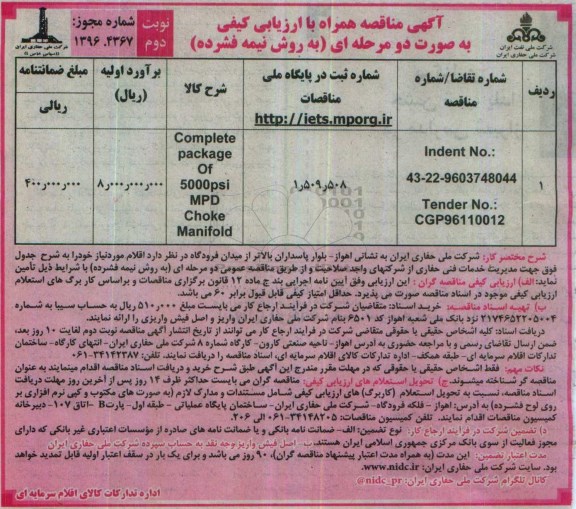 آگهی مناقصه همراه با ارزیابی کیفی
به صورت دو مرحله ای (به روش نیمه فشرده)
نوبت دوم
شماره مجوز:
۱۳۹۶.۴۳۶۷
شرکت ملی نفت ایران
شرکت ملی حفاری ایران
شرکت ملی حفاری ایران
(سهامی خاص)
ردیف
شماره تقاضا/شماره مناقصه
شماره ثبت در پایگاه ملی مناقصات
http://iets.mporg.ir
شرح کالا
برآورد اولیه (ریال)
مبلغ ضمانتنامه ریالی
۱
Indent No.:
43-22-9603748044
Tender No.:
CGP96110012
۱٫۵۰۹٫۵۰۸
Complete
package
Of
5000psi
MPD
Choke
Manifold
۸٫۰۰۰٫۰۰۰٫۰۰۰
۴۰۰٫۰۰۰٫۰۰۰
شرح مختصر کار: شرکت ملی حفاری ایران به نشانی اهواز- بلوار پاسداران بالاتر از میدان فرودگاه در نظر دارد اقلام موردنیاز خودرا به شرح جدول
فوق جهت مدیریت خدمات فنی حفاری از شرکتهای واجد صلاحیت و از طریق مناقصه عمومی دو مرحله ای (به روش نیمه فشرده) با شرایط ذیل تأمین
نماید: الف) ارزیابی کیفی مناقصه گران: این ارزیابی وفق آیین نامه اجرایی بند ج ماده ۱۲ قانون برگزاری مناقصات و براساس کار برگ های استعلام
ارزیابی کیفی موجود در اسناد مناقصه صورت می پذیرد. حداقل امتیاز کیفی قابل قبول برابر ۶۰ می باشد.
ب) تهیه اسناد مناقصه: خرید اسناد: متقاضیان شرکت در فرآیند ارجاع کار می بایست مبلغ ۵۱۰٫۰۰۰ ریال به حساب سیبا به شماره
۲۱۷۴۶۵۲۲۰۵۰۰۴ نزد بانک ملی شعبه اهواز کد ۶۵۰۱ بنام شرکت ملی حفاری ایران واریز و اصل فیش واریزی را ارائه نمایند.
دریافت اسناد: کلیه اشخاص حقیقی یا حقوقی متقاضی شرکت در فرآیند ارجاع کار می توانند از تاریخ انتشار آگهی مناقصه نوبت دوم لغایت ۱۰ روز بعد،
ضمن ارسال تقاضای رسمی و با مراجعه حضوری به آدرس اهواز- ناحیه صنعتی کارون- کارگاه شماره ۸ شرکت ملی حفاری ایران- انتهای کارگاه- ساختمان
تدارکات اقلام سرمایه ای- طبقه همکف- اداره تدارکات کالای اقلام سرمایه ای، اسناد مناقصه را دریافت نمایند. تلفن: ۳۴۱۴۲۳۸۷-۰۶۱
نکات مهم: فقط اشخاص حقیقی یا حقوقی که در مهلت مقرر مندرج این آگهی طبق شرح خرید و دریافت اسناد مناقصه اقدام مینمایند به عنوان
مناقصه گر شناخته میشوند. ج) تحویل استعلام های ارزیابی کیفی: مناقصه گران می بایست حداکثر ظرف ۱۴ روز پس از آخرین روز مهلت دریافت
اسناد مناقصه، نسبت به تحویل استعلام (کاربرگ) های ارزیابی کیفی شامل مستندات و مدارک لازم (به صورت های مکتوب و کپی نرم افزاری بر
روی لوح فشرده) به آدرس: اهواز - فلکه فرودگاه -شرکت ملی حفاری ایران- ساختمان پایگاه عملیاتی - طبقه اول- پارت B -اتاق ۱۰۷- دبیرخانه
کمیسیون مناقصات اقدام نمایند. تلفن کمیسیون مناقصات: ۳۴۱۴۸۲۰۵-۰۶۱ الی ۲۰۶.
د) تضمین شرکت در فرآیند ارجاع کار: نوع تضمین: الف- ضمانت نامه بانکی و یا ضمانت نامه های صادره از مؤسسات اعتباری غیر بانکی که دارای
مجوز فعالیت از سوی بانک مرکزی جمهوری اسلامی ایران هستند. ب- اصل فیش واریز وجه نقد به حساب سپرده شرکت ملی حفاری ایران
مدت اعتبار تضمین: این مدت (به همراه مدت اعتبار پیشنهاد مناقصه گران)، ۹۰ روز می باشد و برای یک بار در سقف اعتبار اولیه قابل تمدید خواهد
بود. سایت شرکت ملی حفاری ایران: www.nidc.ir
کانال تلگرام شرکت ملی حفاری ایران: nidc_pr@
اداره تدارکات کالای اقلام سرمایه ای